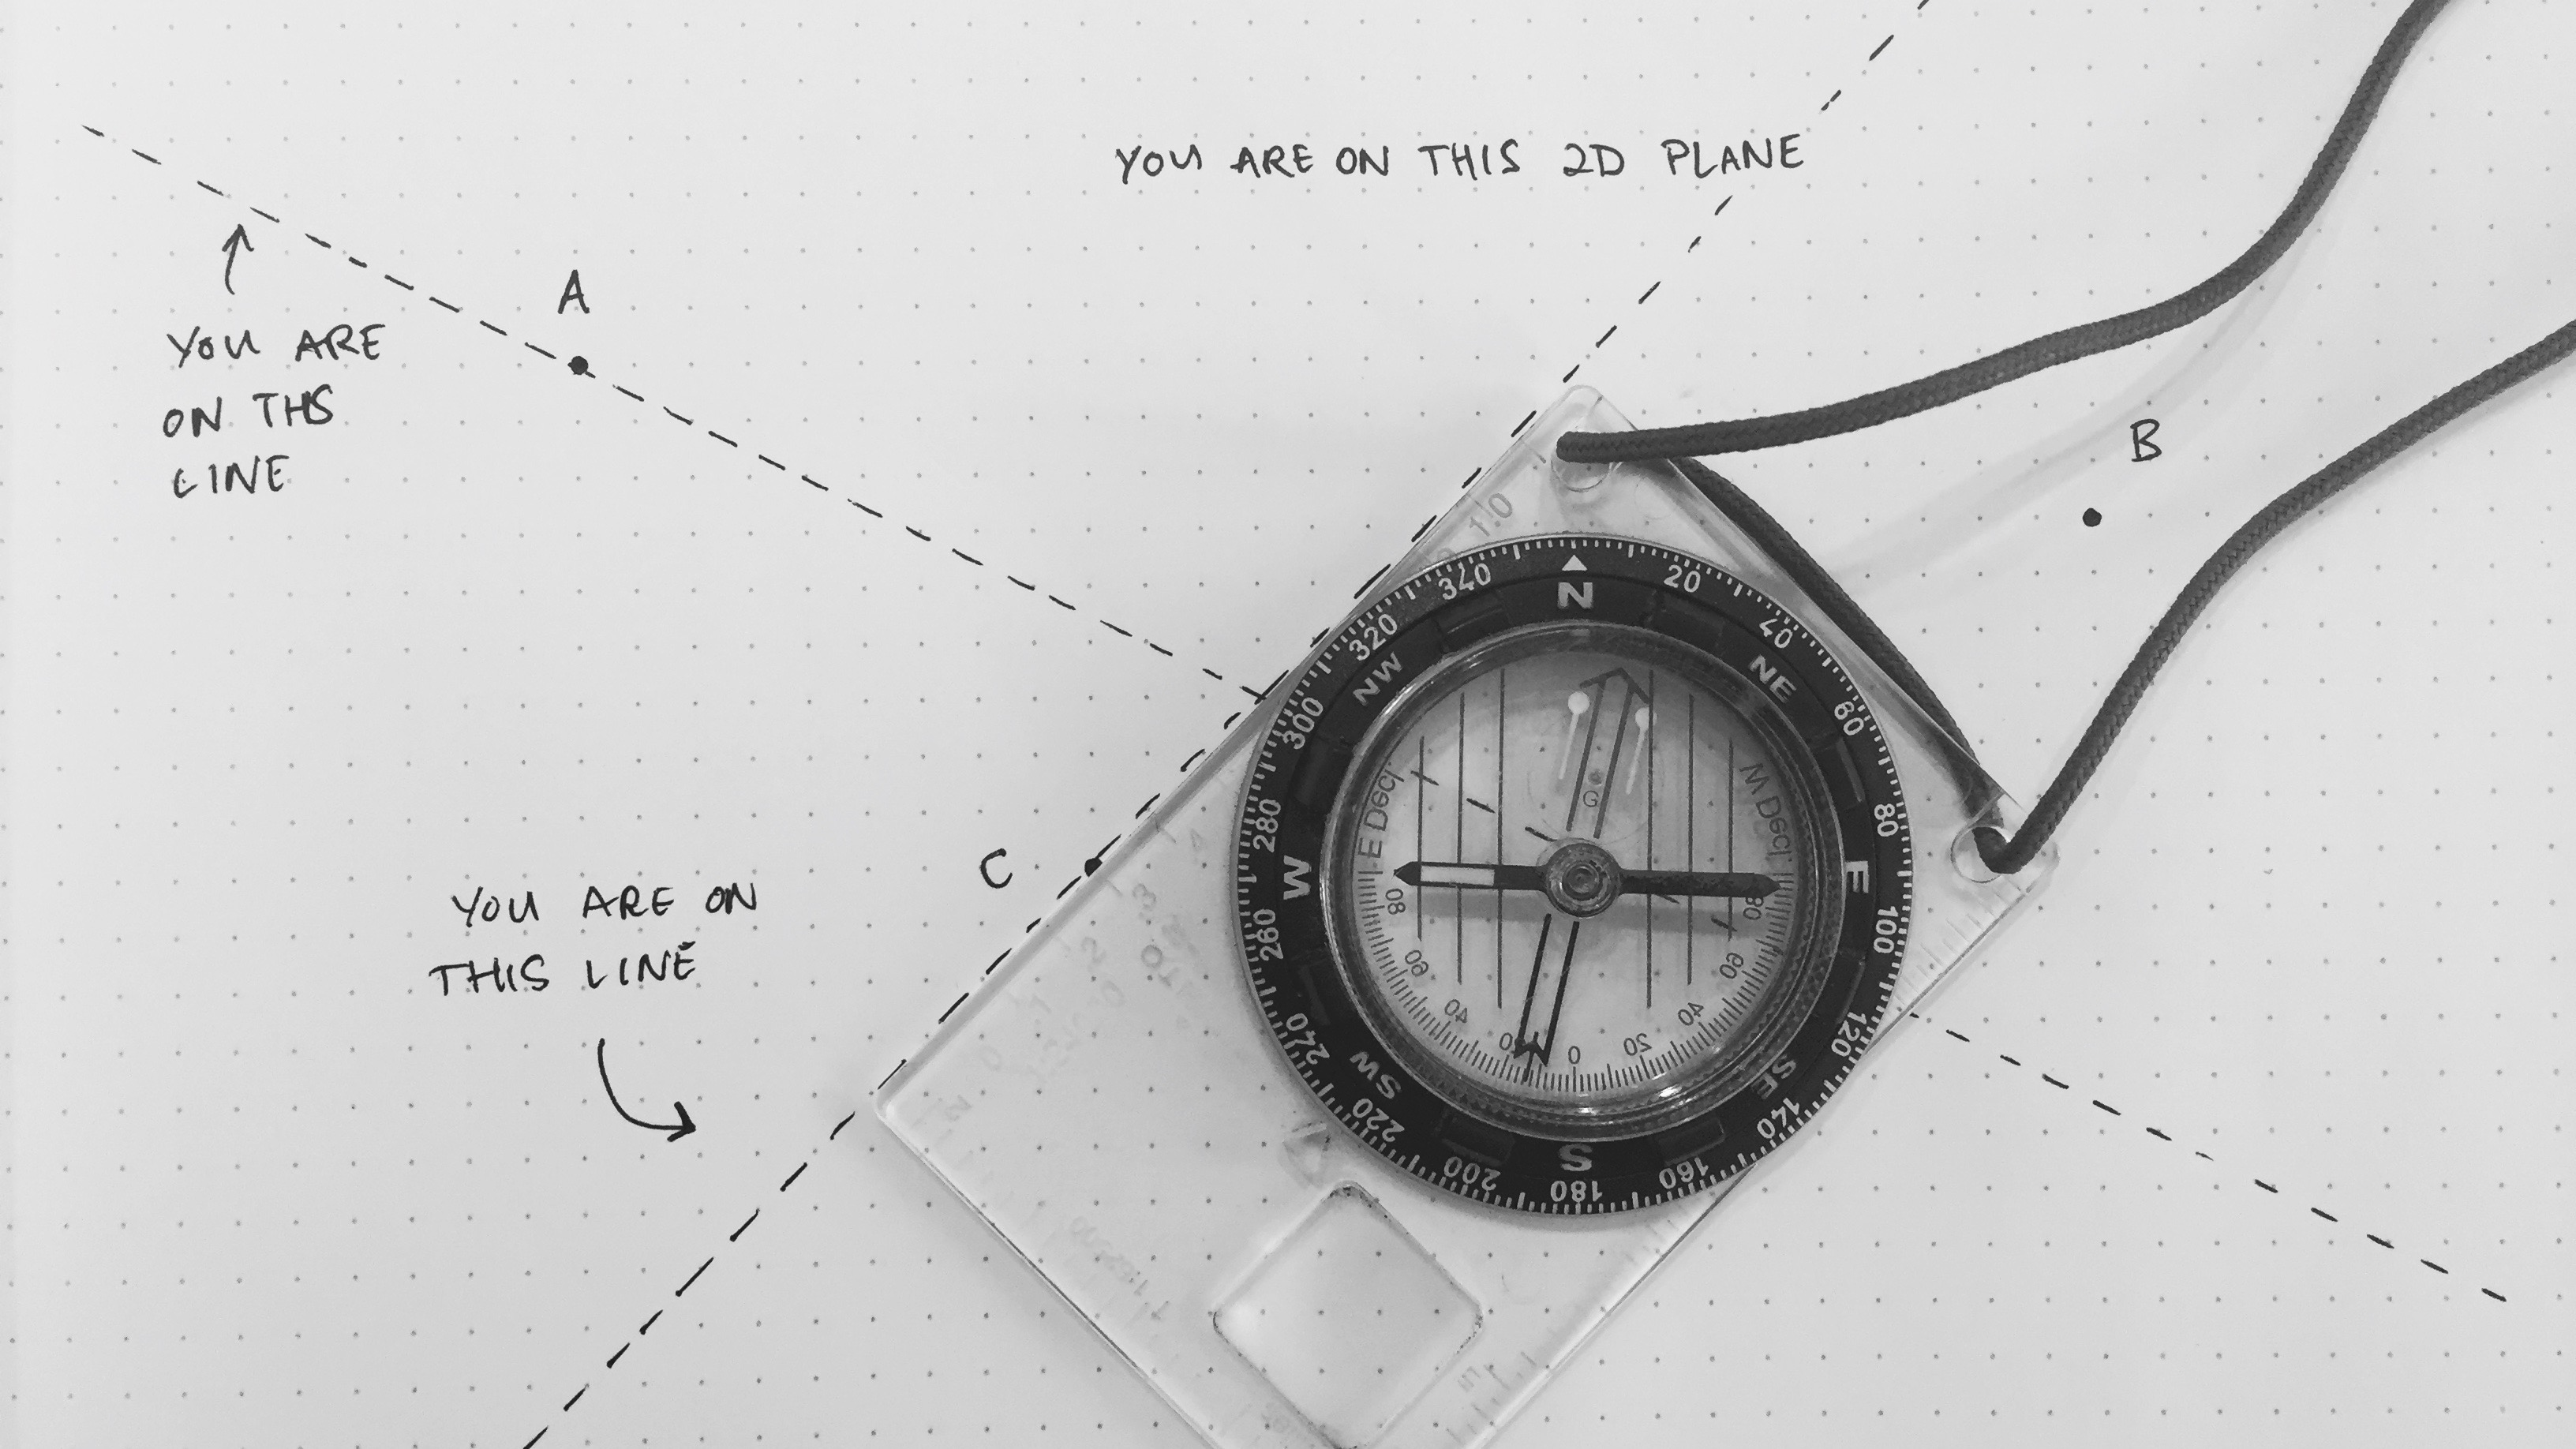 YOU ARE ON THIS 2D PLANE
A
YOU ARE
ON THS
LINE
B
C
YOU ARE ON
THIS LINE
N
20
40
NE
60
80
E
100
120
SE
140
160
S
180
200
SW
220
240
260
W
280
300
NW
320
340
E Decl.
W Decl.
G
80
60
40
20
0
20
40
60
80
10